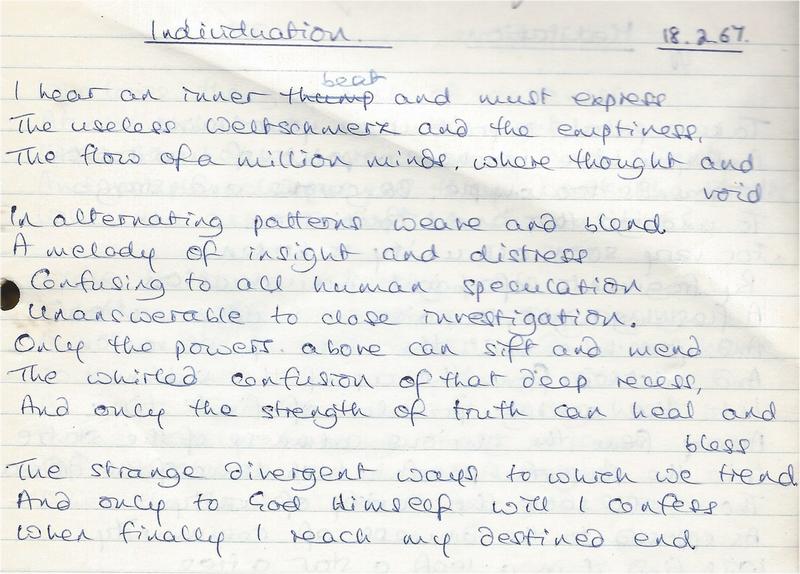 Individuation. 18.2.67.
beat
I hear an inner thump and must express
The useless Weltschmerz and the emptiness,
The flow of a million minds, where thought and
void
In alternating patterns weave and blend
A melody of insight and distress
Confusing to all human speculation
Unanswerable to close investigation.
Only the powers above can sift and mend
The whirled confusion of that deep recess,
And only the strength of truth can heal and
bless
The strange divergent ways to which we trend
And only to God Himself will I confess
When finally I reach my destined end